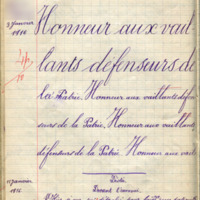 3 Janvier
1916
Honneur aux vail
lants défenseurs de
la Patrie. Honneur aux vaillants défen
seurs de la Patrie. Honneur aux vaillants
défenseurs de la Patrie. Honneur aux vail
17 janvier
1916.
Dictée.
Devant l'ennemi.